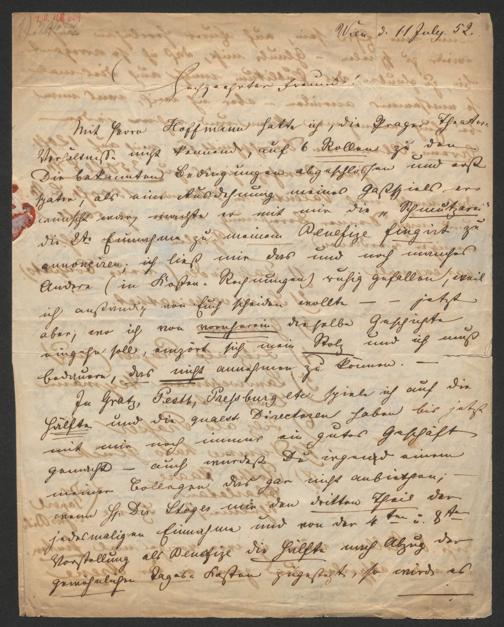 Wien d. 11 July 52.
Hochgeehrter Freund!
Mit Herrn Hoffmann hatte ich, die Prager Theater-
Verhältnisse nicht kennend, auf 6 Rollen zu den
bekannten Bedingungen abgeschlossen und erst
später, als eine Ausdehnung meines Gastspiels er-
wünscht war, machte er mit mir die „Schmutzerei"
die 2te Einnahme zu meinem Benefize fingirt zu
annonciren. ich ließ mir das und noch manches
Andere (in Kosten-Rechnungen) ruhig gefallen, weil
ich anständig von Euch scheiden wollte — — jetzt
aber, wo ich von vornherein dieselbe Geschichte
eingehn soll, empört sich mein Stolz und ich muß
bedauern, das nicht annehmen zu können. —
In Gratz, Pesth, Preßburg etc spiele ich auf die
Hälfte und die Directoren haben bis jetzt
mit mir noch immer ein gutes Geschäft
gemacht — auch würdest Du irgend einem
meiner Collegen das gar nicht anbiethen; —
wenn Hr Dir. Stöger mir den dritten Theil der
jedesmaligen Einnahme und von der 4ten u. 8ten
Vorstellung als Benefize die Hälfte nach Abzug der
gewöhnlichen Tages-Kosten zugesteht, so wird es